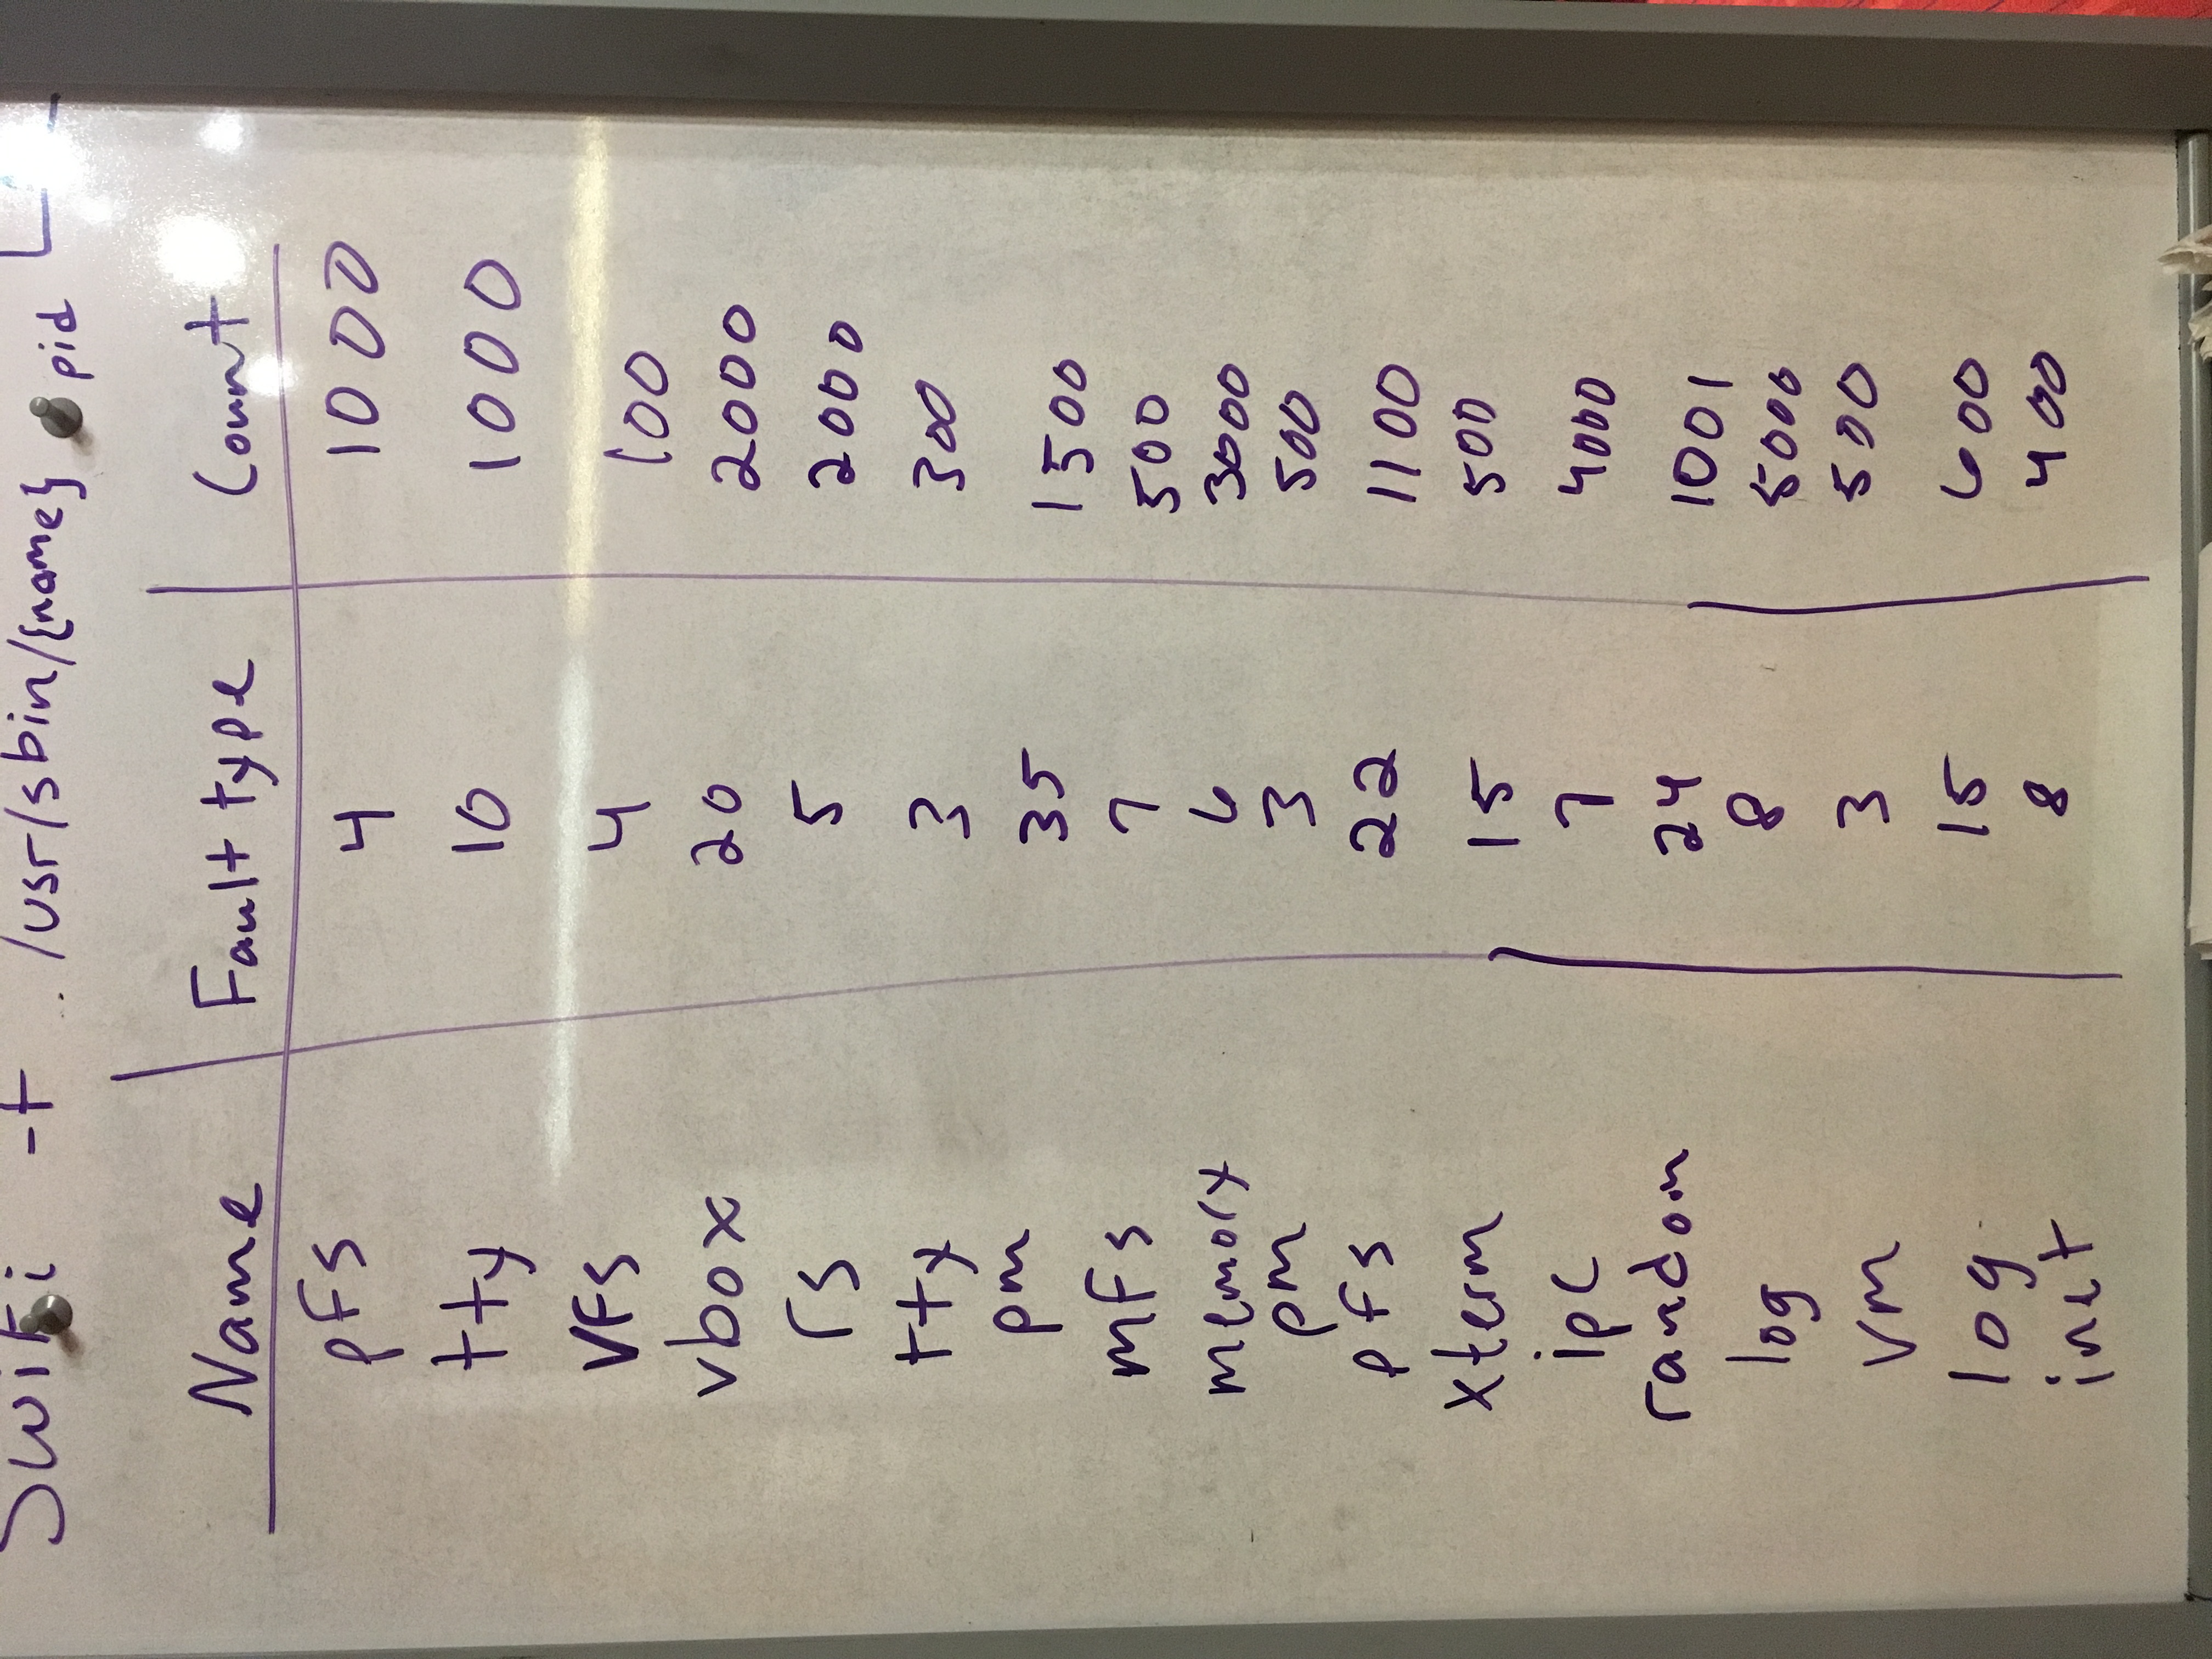 swifi -f /usr/sbin/{name} pid
Name Fault type Count
pfs 4 1000
tty 10 1000
VFS 4 100
vbox 20 2000
rs 5 2000
tty 3 300
pm 35 1500
mfs 7 500
memory 6 3000
pm 3 500
pfs 22 1100
xterm 15 500
ipc 7 4000
random 24 1001
log 8 5000
vm 3 500
log 15 600
inet 8 400